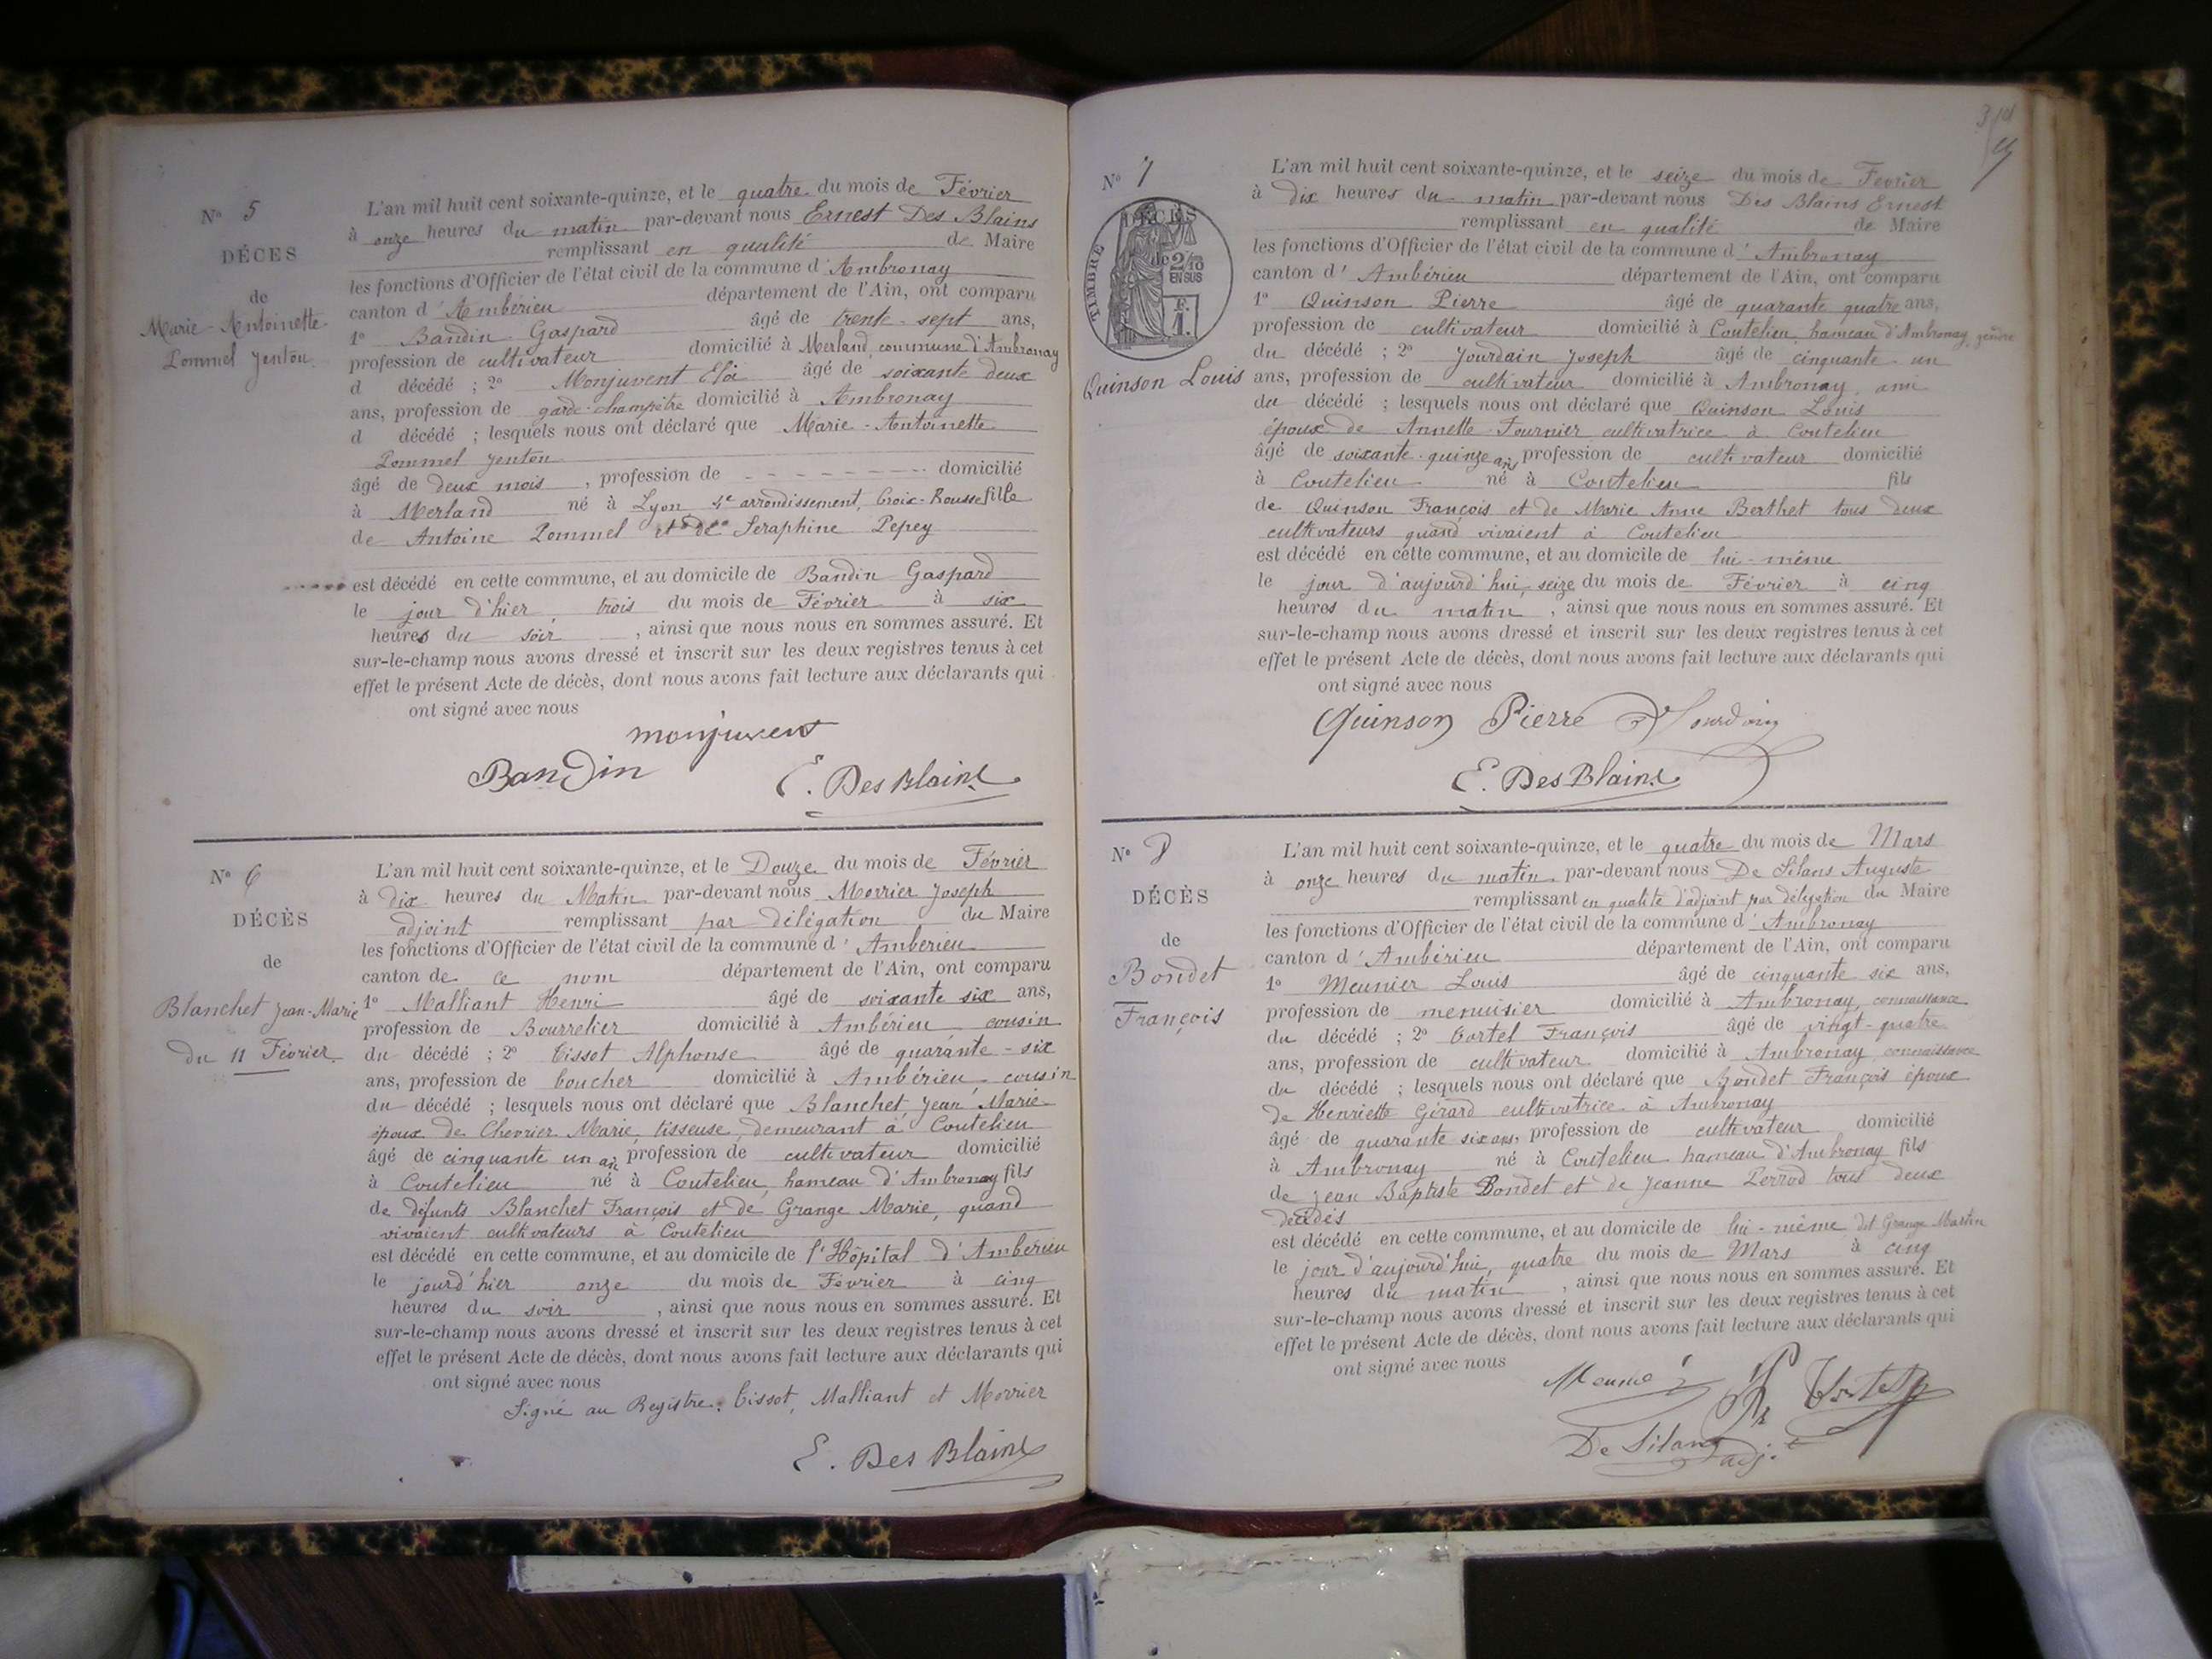 N° 5
DÉCES
de
Marie-Antoinette
Pommel Jenton
L'an mil huit cent soixante-quinze, et le quatre du mois de Février
à onze heures du matin par-devant nous Ernest Des Blains
remplissant en qualité de Maire
les fonctions d'Officier de l'état civil de la commune d'Ambronay
canton d'Ambérieu département de l'Ain, ont comparu
1° Bandin Gaspard âgé de trente-sept ans,
profession de cultivateur domicilié à Merland, commune d'Ambronay
d décédé ; 2° Monjuvent Eloi âgé de soixante deux
ans, profession de garde-champêtre domicilié à Ambronay
d décédé ; lesquels nous ont déclaré que Marie-Antoinette
Pommel Jenton
âgé de deux mois, profession de - - - - - - - domicilié
à Merland né à Lyon 4e arrondissement, Croix-Rousse fille
de Antoine Pommel et de Seraphine Pepey
est décédé en cette commune, et au domicile de Bandin Gaspard
le jour d'hier, trois du mois de Février à six
heures du soir, ainsi que nous nous en sommes assuré. Et
sur-le-champ nous avons dressé et inscrit sur les deux registres tenus à cet
effet le présent Acte de décès, dont nous avons fait lecture aux déclarants qui
ont signé avec nous
monjuvent
Bandin E. Des Blains
N° 6
DÉCÈS
de
Blanchet Jean-Marie
du 11 Février
L'an mil huit cent soixante-quinze, et le Douze du mois de Février
à dix heures du Matin par-devant nous Morrier Joseph
adjoint remplissant par délégation du Maire
les fonctions d'Officier de l'état civil de la commune d'Ambérieu
canton de ce nom département de l'Ain, ont comparu
1° Malliant Henri âgé de soixante six ans,
profession de Bourrelier domicilié à Ambérieu cousin
du décédé ; 2° Tissot Alphonse âgé de quarante-six
ans, profession de boucher domicilié à Ambérieu cousin
du décédé ; lesquels nous ont déclaré que Blanchet Jean Marie
époux de Chevrier Marie, tisseuse, demeurant à Coutelieu
âgé de cinquante un an profession de cultivateur domicilié
à Coutelieu né à Coutelieu, hameau d'Ambronay fils
de défunts Blanchet François et de Grange Marie, quand
vivaient cultivateurs à Coutelieu
est décédé en cette commune, et au domicile de l'Hôpital d'Ambérieu
le jourd'hier onze du mois de Février à cinq
heures du soir, ainsi que nous nous en sommes assuré. Et
sur-le-champ nous avons dressé et inscrit sur les deux registres tenus à cet
effet le présent Acte de décès, dont nous avons fait lecture aux déclarants qui
ont signé avec nous
Signé au Registre: Tissot, Malliant et Morrier
E. Des Blains
N° 7
DÉCÈS
TIMBRE
de 2/10
EN SUS
F.
1.
Quinson Louis
L'an mil huit cent soixante-quinze, et le seize du mois de Fevrier
à dix heures du matin par-devant nous Des Blains Ernest
remplissant en qualité de Maire
les fonctions d'Officier de l'état civil de la commune d'Ambronay
canton d'Ambérieu département de l'Ain, ont comparu
1° Quinson Pierre âgé de quarante quatre ans,
profession de cultivateur domicilié à Coutelieu, hameau d'Ambronay, gendre
du décédé ; 2° Jourdain Joseph âgé de cinquante un
ans, profession de cultivateur domicilié à Ambronay, ami
du décédé ; lesquels nous ont déclaré que Quinson Louis
époux de Annette Fournier cultivatrice à Coutelieu
âgé de soixante-quinze ans, profession de cultivateur domicilié
à Coutelieu né à Coutelieu fils
de Quinson François et de Marie Anne Berthet tous deux
cultivateurs quand vivaient à Coutelieu
est décédé en cette commune, et au domicile de lui-même
le jour d'aujourd'hui, seize du mois de Février à cinq
heures du matin, ainsi que nous nous en sommes assuré. Et
sur-le-champ nous avons dressé et inscrit sur les deux registres tenus à cet
effet le présent Acte de décès, dont nous avons fait lecture aux déclarants qui
ont signé avec nous
Quinson Pierre Jourdain
E. Des Blains
N° 8
DÉCÈS
de
Bondet
François
L'an mil huit cent soixante-quinze, et le quatre du mois de Mars
à onze heures du matin par-devant nous De Silans Auguste
remplissant en qualité d'adjoint par délégation du Maire
les fonctions d'Officier de l'état civil de la commune d'Ambronay
canton d'Ambérieu département de l'Ain, ont comparu
1° Meunier Louis âgé de cinquante six ans,
profession de menuisier domicilié à Ambronay, connaissance
du décédé ; 2° Tortel François âgé de vingt-quatre
ans, profession de cultivateur domicilié à Ambronay connaissance
du décédé ; lesquels nous ont déclaré que Bondet François époux
de Henriette Girard cultivatrice à Ambronay
âgé de quarante six ans, profession de cultivateur domicilié
à Ambronay né à Coutelieu hameau d'Ambronay fils
de Jean Baptiste Bondet et de Jeanne Perrod tous deux
décédés
est décédé en cette commune, et au domicile de lui-même dit Grange Martin
le jour d'aujourd'hui, quatre du mois de Mars à cinq
heures du matin, ainsi que nous nous en sommes assuré. Et
sur-le-champ nous avons dressé et inscrit sur les deux registres tenus à cet
effet le présent Acte de décès, dont nous avons fait lecture aux déclarants qui
ont signé avec nous
Meunié Tortel
De Silans adj.t